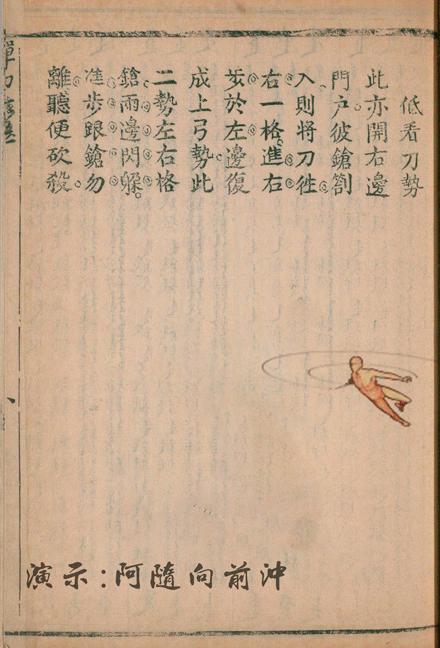 低看刀勢
此亦開右邊
門户彼鎗劄
入則将刀徃
右一格進右
步於左邊復
成上弓勢此
二勢左右格
鎗兩邊閃躱
進步跟鎗勿
離聽便砍殺
單刀
演示:阿隨向前沖